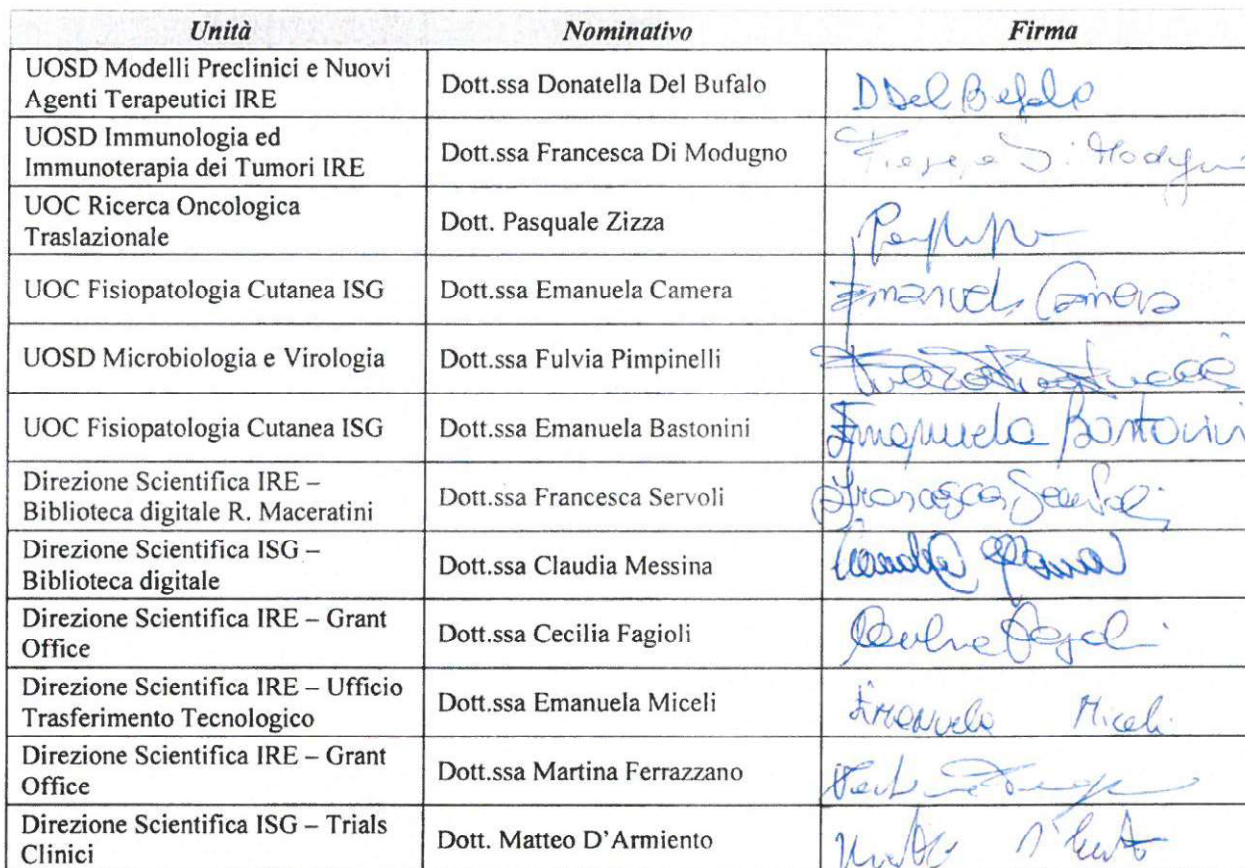 Unità Nominativo Firma
UOSD Modelli Preclinici e Nuovi
Agenti Terapeutici IRE
Dott.ssa Donatella Del Bufalo
D Del Bufalo
UOSD Immunologia ed
Immunoterapia dei Tumori IRE
Dott.ssa Francesca Di Modugno
Di Modugno
UOC Ricerca Oncologica
Traslazionale
Dott. Pasquale Zizza
UOC Fisiopatologia Cutanea ISG
Dott.ssa Emanuela Camera
Emanuela Camera
UOSD Microbiologia e Virologia
Dott.ssa Fulvia Pimpinelli
UOC Fisiopatologia Cutanea ISG
Dott.ssa Emanuela Bastonini
Emanuela Bastonini
Direzione Scientifica IRE –
Biblioteca digitale R. Maceratini
Dott.ssa Francesca Servoli
Francesca Servoli
Direzione Scientifica ISG –
Biblioteca digitale
Dott.ssa Claudia Messina
Direzione Scientifica IRE – Grant
Office
Dott.ssa Cecilia Fagioli
Direzione Scientifica IRE – Ufficio
Trasferimento Tecnologico
Dott.ssa Emanuela Miceli
Emanuela Miceli
Direzione Scientifica IRE – Grant
Office
Dott.ssa Martina Ferrazzano
Direzione Scientifica ISG – Trials
Clinici
Dott. Matteo D'Armiento